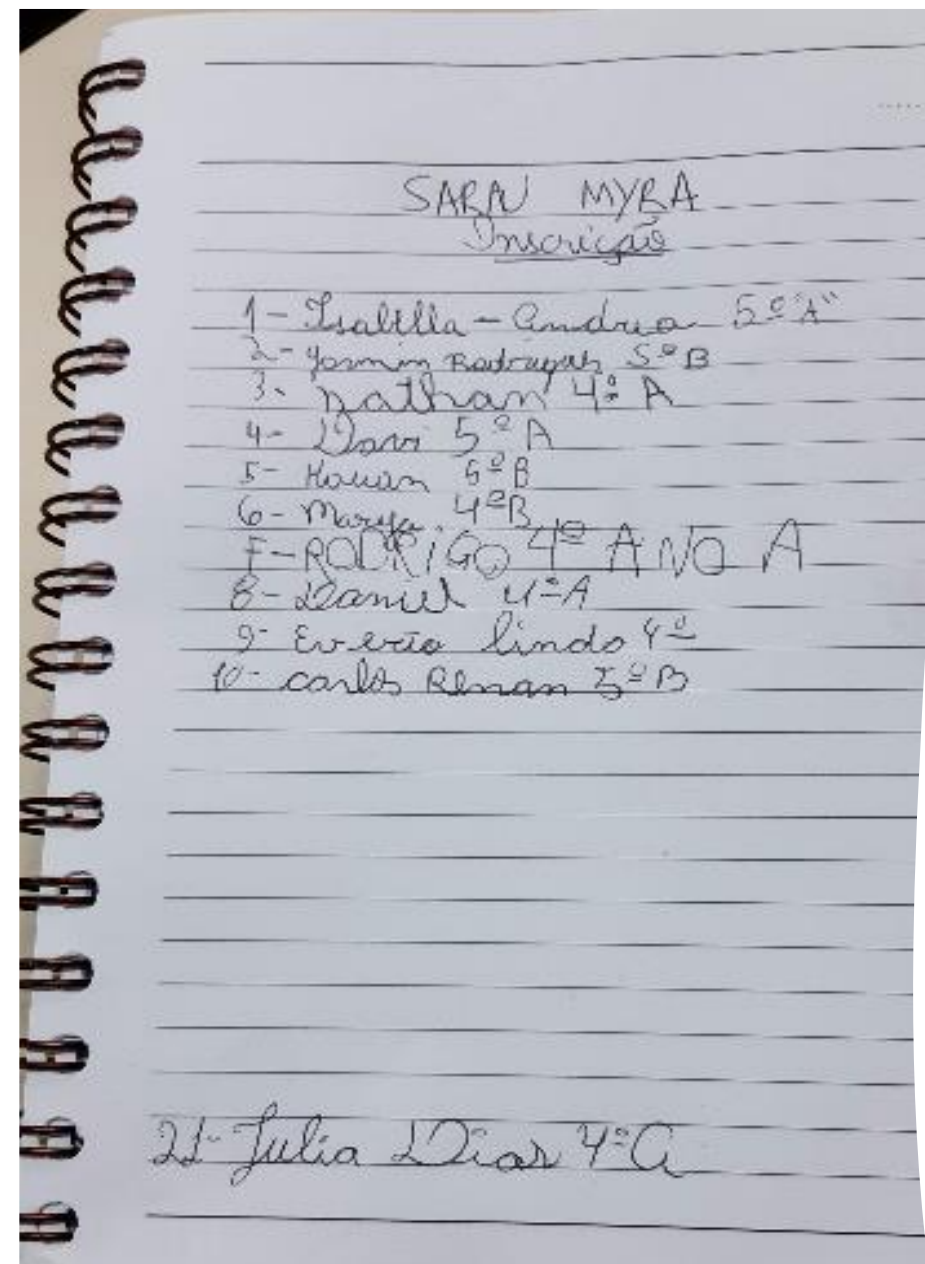 SARAU MYRA
Inscrição
1- Isabella - Andrea 5º "A"
2- Yasmin Rodrigues 5º B
3- Nathan 4º A
4- Davi 5º A
5- Kauan 5º B
6- Marya 4º B
7- RODRIGO 4º ANO A
8- Daniel 4º A
9- lindo 4º
10- carlos Renan 5º B
21- Julia Dias 4º A